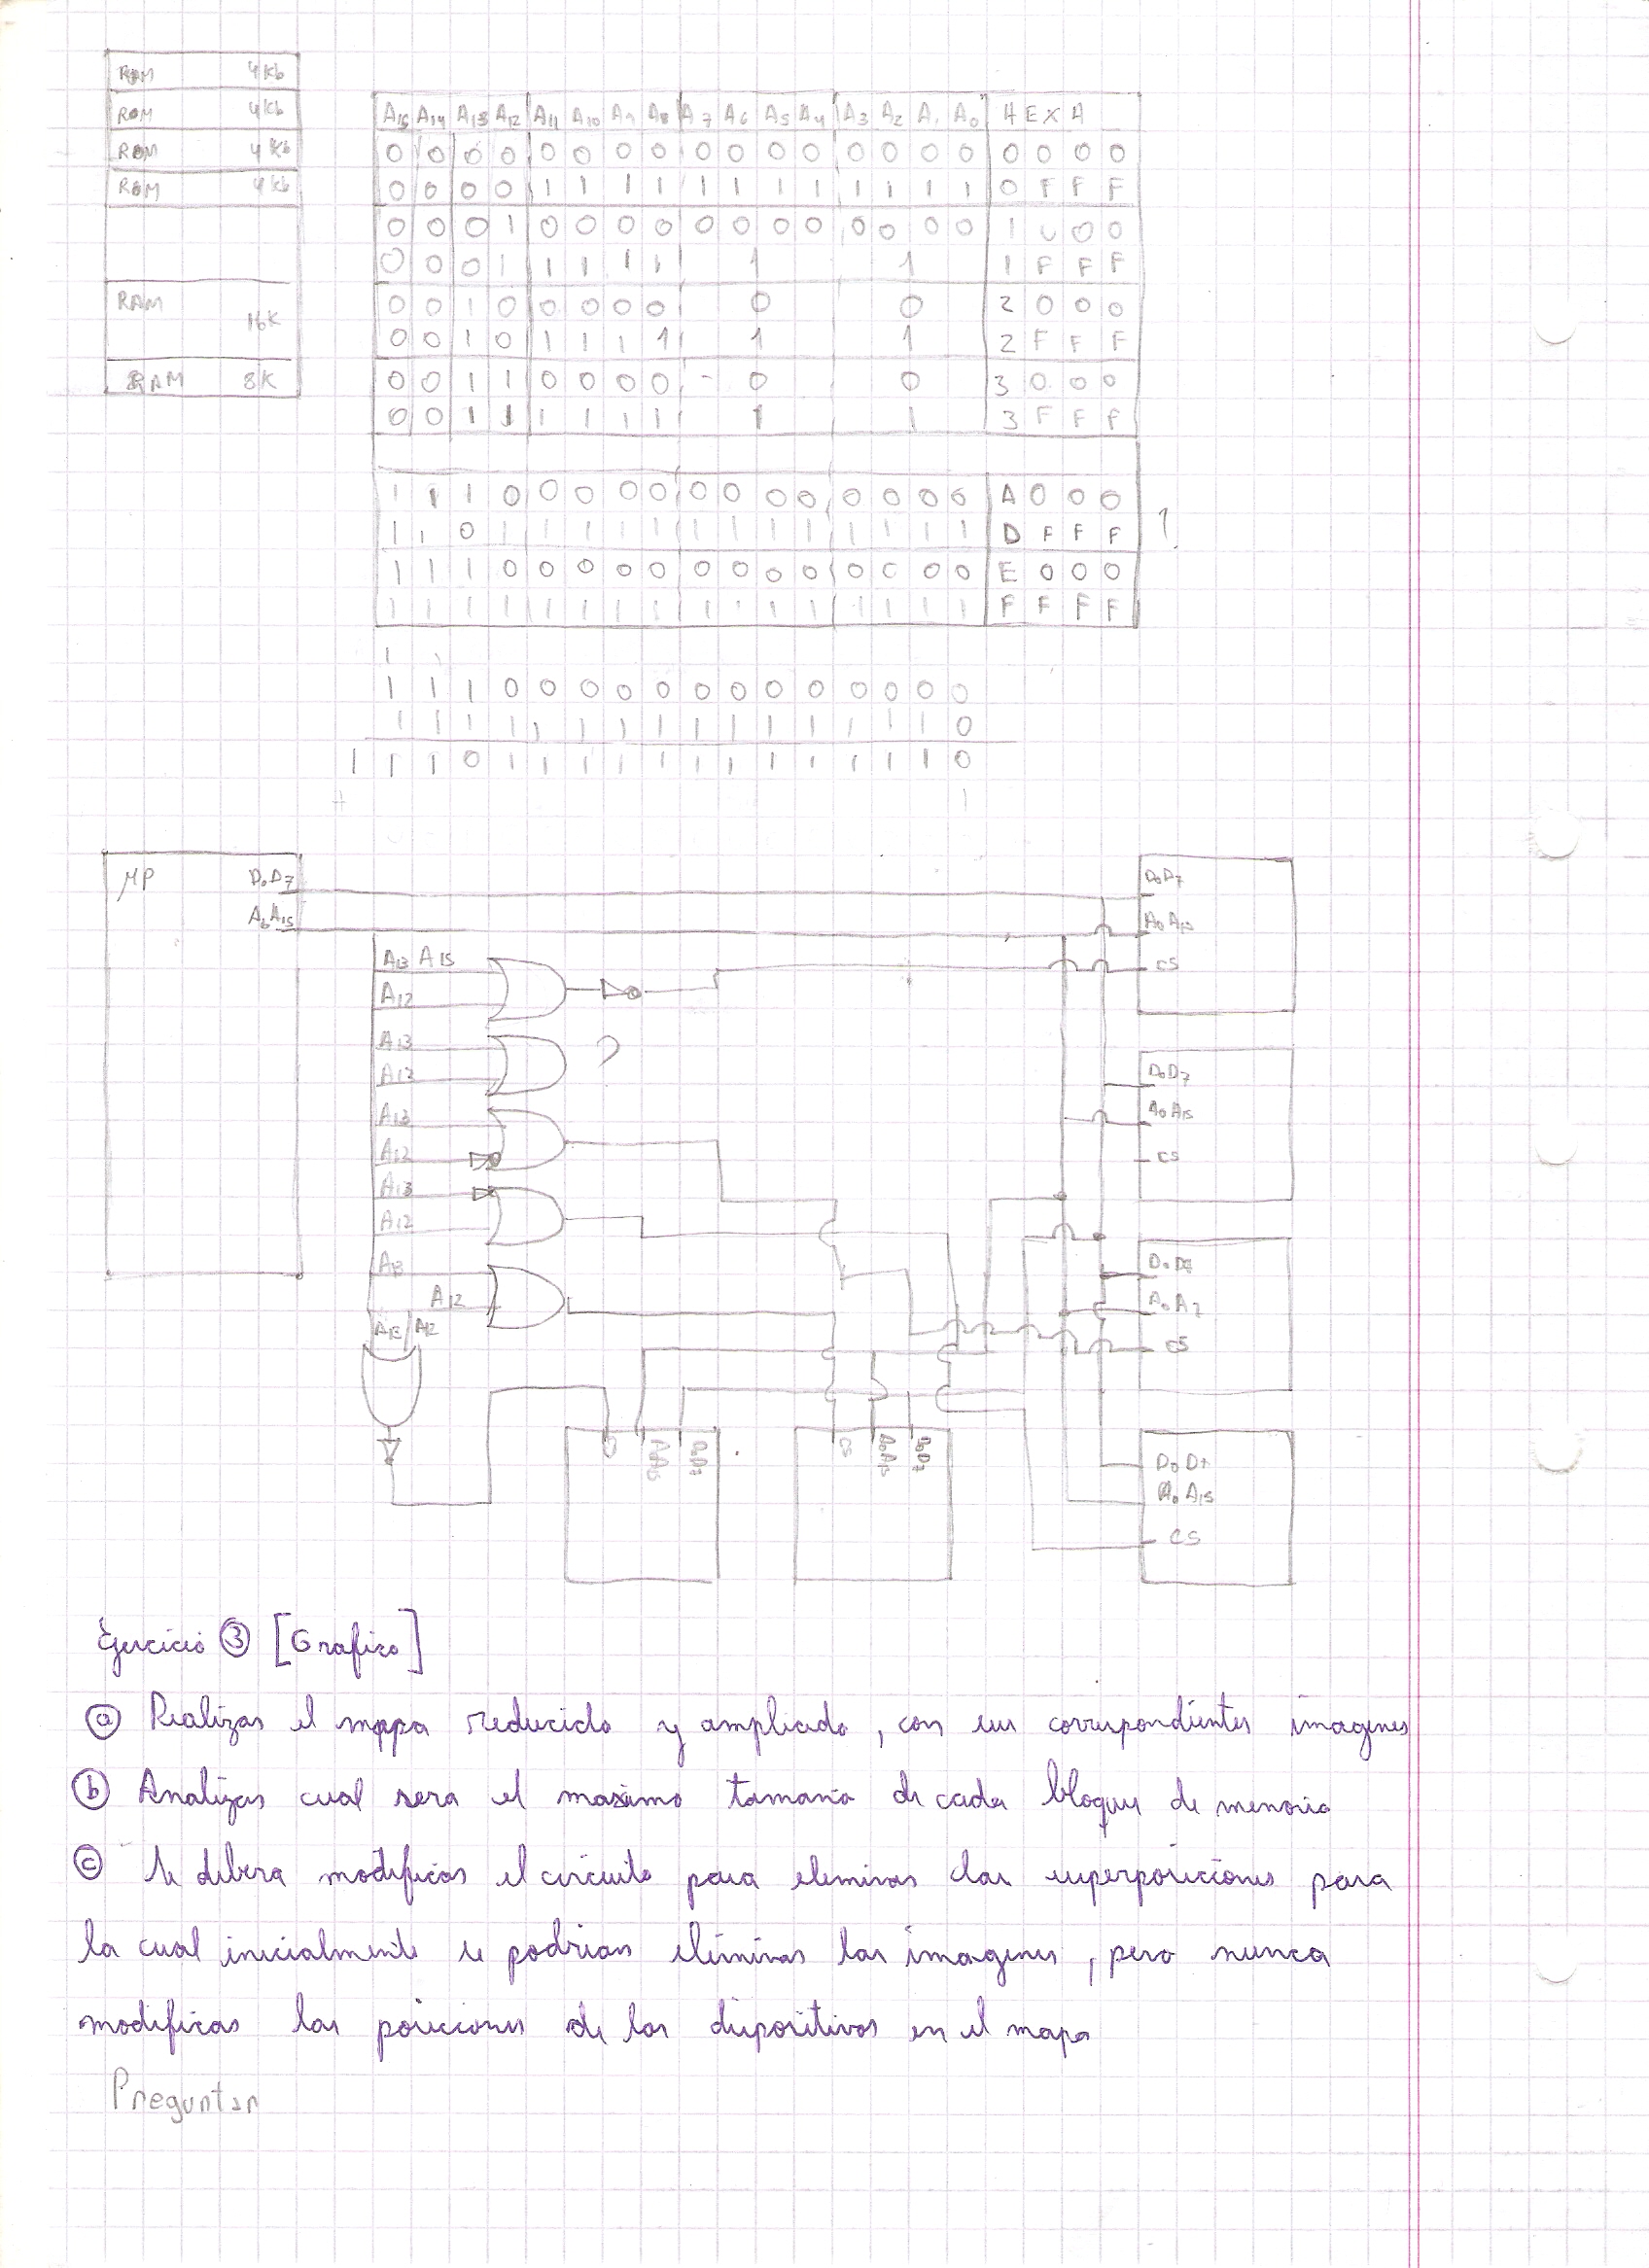 ROM 4Kb
ROM 4Kb
ROM 4Kb
ROM 4Kb
RAM 16K
RAM 8K
A15 A14 A13 A12 A11 A10 A9 A8 A7 A6 A5 A4 A3 A2 A1 A0 HEXA
0 0 0 0 0 0 0 0 0 0 0 0 0 0 0 0 0 0 0 0
0 0 0 0 1 1 1 1 1 1 1 1 1 1 1 1 0 F F F
0 0 0 1 0 0 0 0 0 0 0 0 0 0 0 0 1 0 0 0
0 0 0 1 1 1 1 1 1 1 1 F F F
0 0 1 0 0 0 0 0 0 0 2 0 0 0
0 0 1 0 1 1 1 1 1 1 2 F F F
0 0 1 1 0 0 0 0 0 0 3 0 0 0
0 0 1 1 1 1 1 1 1 1 3 F F F
1 1 1 0 0 0 0 0 0 0 0 0 0 0 0 0 A 0 0 0
1 1 0 1 1 1 1 1 1 1 1 1 1 1 1 1 D F F F ?
1 1 1 0 0 0 0 0 0 0 0 0 0 0 0 0 E 0 0 0
1 1 1 1 1 1 1 1 1 1 1 1 1 1 1 1 F F F F
1 1
1 1 1 0 0 0 0 0 0 0 0 0 0 0 0 0
1 1 1 1 1 1 1 1 1 1 1 1 1 1 1 0
1 1 1 0 1 1 1 1 1 1 1 1 1 1 1 1 0
µP D0D7
A0A15
D0D7
A0A15
CS
A13 A15
A12
A13
A12
?
A13
A12
A13
A12
A13
A12
A13 A12
D0D7
A0A15
CS
D0D7
A0A7
CS
A0A15 D0D7
CS A0A15 D0D7
D0D7
A0A15
CS
Ejercicio ③ [Grafico]
ⓐ Realizar el mapa reducido y ampliado, con sus correspondientes imagenes
ⓑ Analizar cual sera el maximo tamaño de cada bloque de memoria
ⓒ Se debera modificar el circuito para eliminar las superposiciones para
la cual inicialmente se podrian eliminar las imagenes, pero nunca
modificar las posiciones de los dispositivos en el mapa
Preguntar